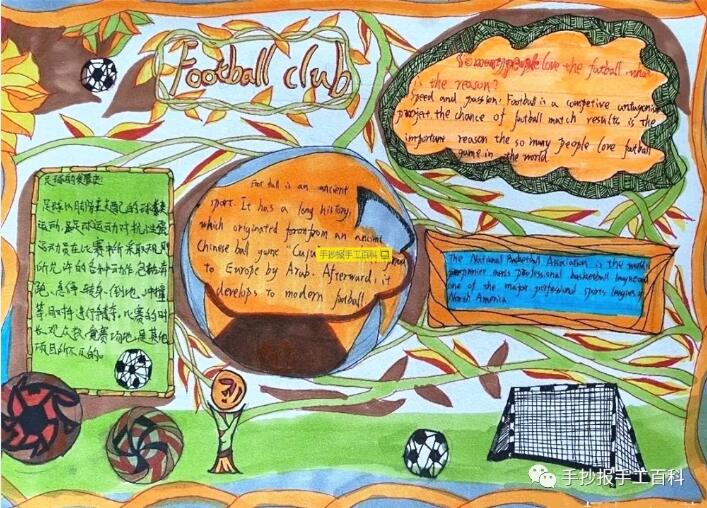 Football club
So many people love the football, what
is the reason?
Speed and passion. Football is a competive antagonistic
project, the chance of football match results is the
important reason the so many people love football
game in the world.
足球的发展史:
足球以脚
运动
运动员在比赛中所采取规则
所允许的各种动作包括奔
跑、急停、转身、倒地、冲撞
等,同对手进行争夺,比赛的时
长、观众数、竞赛场地,是其他
项目所不可的。
Football is an ancient
sport. It has a long history,
which originated from an ancient
Chinese ball game "Cuju
to Europe by Arab. Afterward, it
develops to modern football.
The National Basketball Association is the world's
premier men's professional basketball league and
one of the major professional sports leagues of
North America.
手抄报手工百科
手抄报手工百科